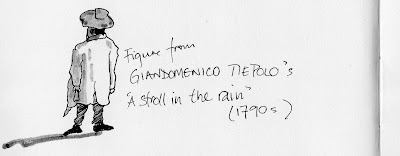 Figure from
GIANDOMENICO TIEPOLO's
"A stroll in the rain"
(1790s)